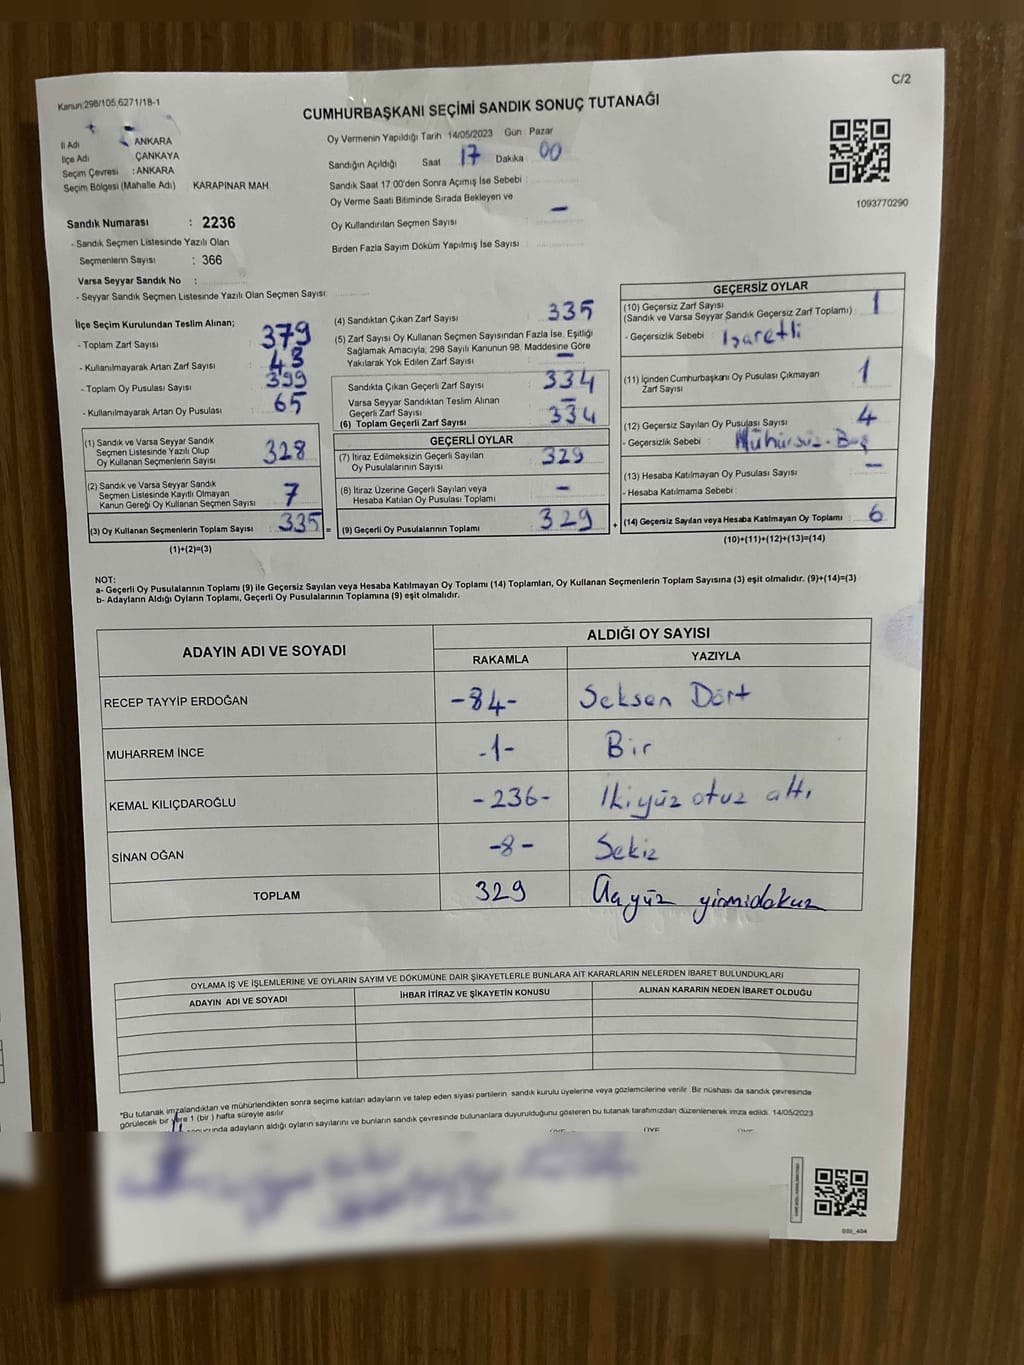 C/2
Kanun:298/105,6271/18-1
CUMHURBAŞKANI SEÇİMİ SANDIK SONUÇ TUTANAĞI
İl Adı ANKARA
İlçe Adı ÇANKAYA
Seçim Çevresi : ANKARA
Seçim Bölgesi (Mahalle Adı) KARAPINAR MAH
Oy Vermenin Yapıldığı Tarih 14/05/2023 Gün Pazar
Sandığın Açıldığı Saat 17 Dakika 00
Sandık Saat 17.00'den Sonra Açımış İse Sebebi :
Oy Verme Saati Bitiminde Sırada Bekleyen ve
Oy Kullandırılan Seçmen Sayısı –
Birden Fazla Sayım Döküm Yapılmış İse Sayısı
1093770290
Sandık Numarası : 2236
- Sandık Seçmen Listesinde Yazılı Olan
Seçmenlerin Sayısı : 366
Varsa Seyyar Sandık No :
- Seyyar Sandık Seçmen Listesinde Yazılı Olan Seçmen Sayısı:
İlçe Seçim Kurulundan Teslim Alınan;
- Toplam Zarf Sayısı 379
- Kullanılmayarak Artan Zarf Sayısı 43
- Toplam Oy Pusulası Sayısı 399
- Kullanılmayarak Artan Oy Pusulası 65
(1) Sandık ve Varsa Seyyar Sandık
Seçmen Listesinde Yazılı Olup
Oy Kullanan Seçmenlerin Sayısı 328
(2) Sandık ve Varsa Seyyar Sandık
Seçmen Listesinde Kayıtlı Olmayan
Kanun Gereği Oy Kullanan Seçmen Sayısı 7
(3) Oy Kullanan Seçmenlerin Toplam Sayısı 335 =
(1)+(2)=(3)
(4) Sandıktan Çıkan Zarf Sayısı 335
(5) Zarf Sayısı Oy Kullanan Seçmen Sayısından Fazla İse, Eşitliği
Sağlamak Amacıyla, 298 Sayılı Kanunun 98. Maddesine Göre
Yakılarak Yok Edilen Zarf Sayısı –
Sandıkta Çıkan Geçerli Zarf Sayısı 334
Varsa Seyyar Sandıktan Teslim Alınan
Geçerli Zarf Sayısı –
(6) Toplam Geçerli Zarf Sayısı 334
GEÇERLİ OYLAR
(7) İtiraz Edilmeksizin Geçerli Sayılan
Oy Pusulalarının Sayısı 329
(8) İtiraz Üzerine Geçerli Sayılan veya
Hesaba Katılan Oy Pusulası Toplamı –
(9) Geçerli Oy Pusulalarının Toplamı 329 +
GEÇERSİZ OYLAR
(10) Geçersiz Zarf Sayısı
(Sandık ve Varsa Seyyar Sandık Geçersiz Zarf Toplamı) 1
- Geçersizlik Sebebi İşaretli
(11) İçinden Cumhurbaşkanı Oy Pusulası Çıkmayan
Zarf Sayısı 1
(12) Geçersiz Sayılan Oy Pusulası Sayısı 4
- Geçersizlik Sebebi Mühürsüz-Boş
(13) Hesaba Katılmayan Oy Pusulası Sayısı –
- Hesaba Katılmama Sebebi :
(14) Geçersiz Sayılan veya Hesaba Katılmayan Oy Toplamı 6
(10)+(11)+(12)+(13)=(14)
NOT:
a- Geçerli Oy Pusulalarının Toplamı (9) ile Geçersiz Sayılan veya Hesaba Katılmayan Oy Toplamı (14) Toplamları, Oy Kullanan Seçmenlerin Toplam Sayısına (3) eşit olmalıdır. (9)+(14)=(3)
b- Adayların Aldığı Oyların Toplamı, Geçerli Oy Pusulalarının Toplamına (9) eşit olmalıdır.
ADAYIN ADI VE SOYADI ALDIĞI OY SAYISI
RAKAMLA YAZIYLA
RECEP TAYYİP ERDOĞAN -84- Seksen Dört
MUHARREM İNCE -1- Bir
KEMAL KILIÇDAROĞLU -236- İkiyüz otuz altı
SİNAN OĞAN -8- Sekiz
TOPLAM 329 Üçyüz yirmidokuz
OYLAMA İŞ VE İŞLEMLERİNE VE OYLARIN SAYIM VE DÖKÜMÜNE DAİR ŞİKAYETLERLE BUNLARA AİT KARARLARIN NELERDEN İBARET BULUNDUKLARI
ADAYIN ADI VE SOYADI İHBAR İTİRAZ VE ŞİKAYETİN KONUSU ALINAN KARARIN NEDEN İBARET OLDUĞU
*Bu tutanak imzalandıktan ve mühürlendikten sonra seçime katılan adayların ve talep eden siyasi partilerin sandık kurulu üyelerine veya gözlemcilerine verilir. Bir nüshası da sandık çevresinde
görülecek bir yere 1 (bir) hafta süreyle asılır
adayların aldığı oyların sayılarını ve bunların sandık çevresinde bulunanlara duyurulduğunu gösteren bu tutanak tarafımızdan düzenlenerek imza edildi. 14/05/2023